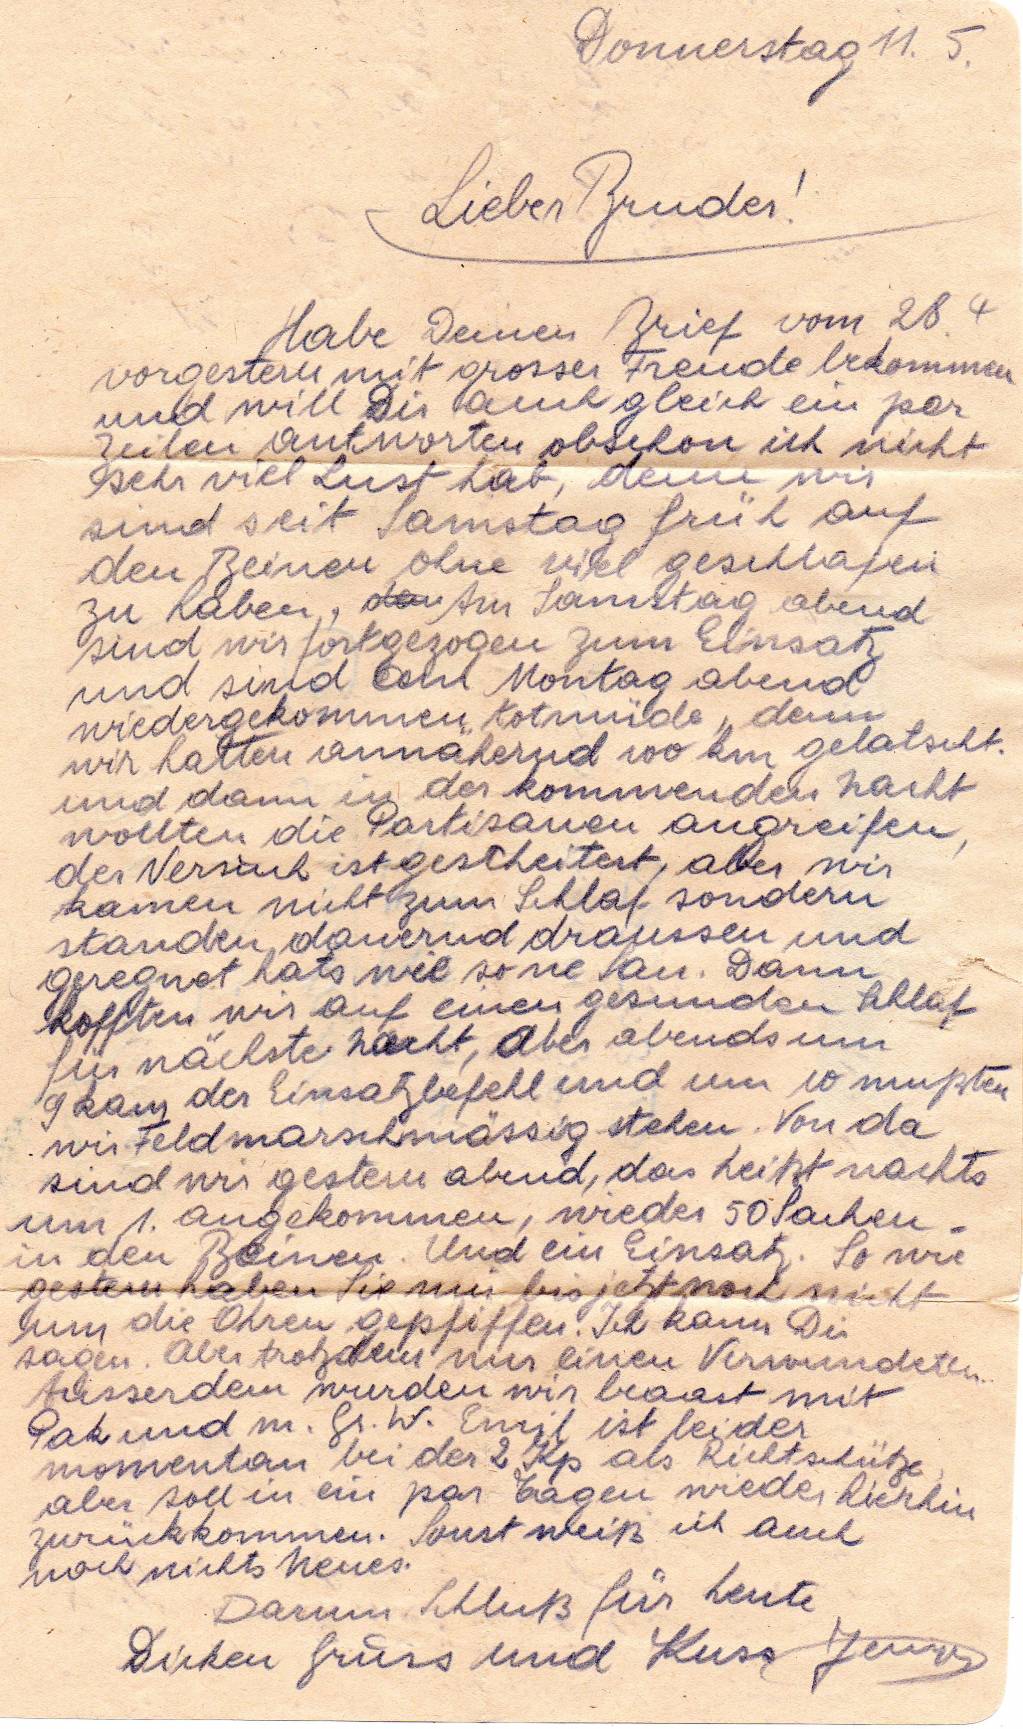 Donnerstag 11. 5.
Lieber Bruder!
Habe Deinen Brief vom 28. 4
vorgestern mit grosser Freude bekommen
und will Dir auch gleich ein par
Zeilen antworten obschon ich nicht
sehr viel Lust hab, denn wir
sind seit Samstag früh auf
den Beinen ohne viel geschlafen
zu haben, Am Samstag abend
sind wir fortgezogen zum Einsatz
und sind am Montag abend
wiedergekommen, totmüde, denn
wir hatten annähernd 100 km gelatscht.
und dann in der kommenden Nacht
wollten die Partisanen angreifen,
der Versuch ist gescheitert, aber wir
kamen nicht zum Schlaf sondern
standen dauernd draussen und
geregnet hats wie so ne Sau. Dann
hofften wir auf einen gesunden Schlaf
für nächste Nacht, Aber abends um
9 kam der Einsatzbefehl und um 10 mußten
wir Feldmarschmässig stehen. Von da
sind wir gestern abend, das heißt nachts
um 1. angekommen, wieder 50 Sachen
in den Beinen. Und ein Einsatz. So wie
gestern haben Sie mir bis jetzt noch nicht
um die Ohren gepfiffen. Ich kann Dir
sagen. Aber trotzdem nur einen Verwundeten.
Ausserdem wurden wir beaast mit
Pak und m. Gr. W. Emil ist leider
momentan bei der 2 Kp als Richtschütze,
aber soll in ein par Tagen wieder hierhin
zurückkommen. Sonst weiß ich auch
noch nichts Neues.
Darum Schluß für heute
Dicken Gruss und Kuss